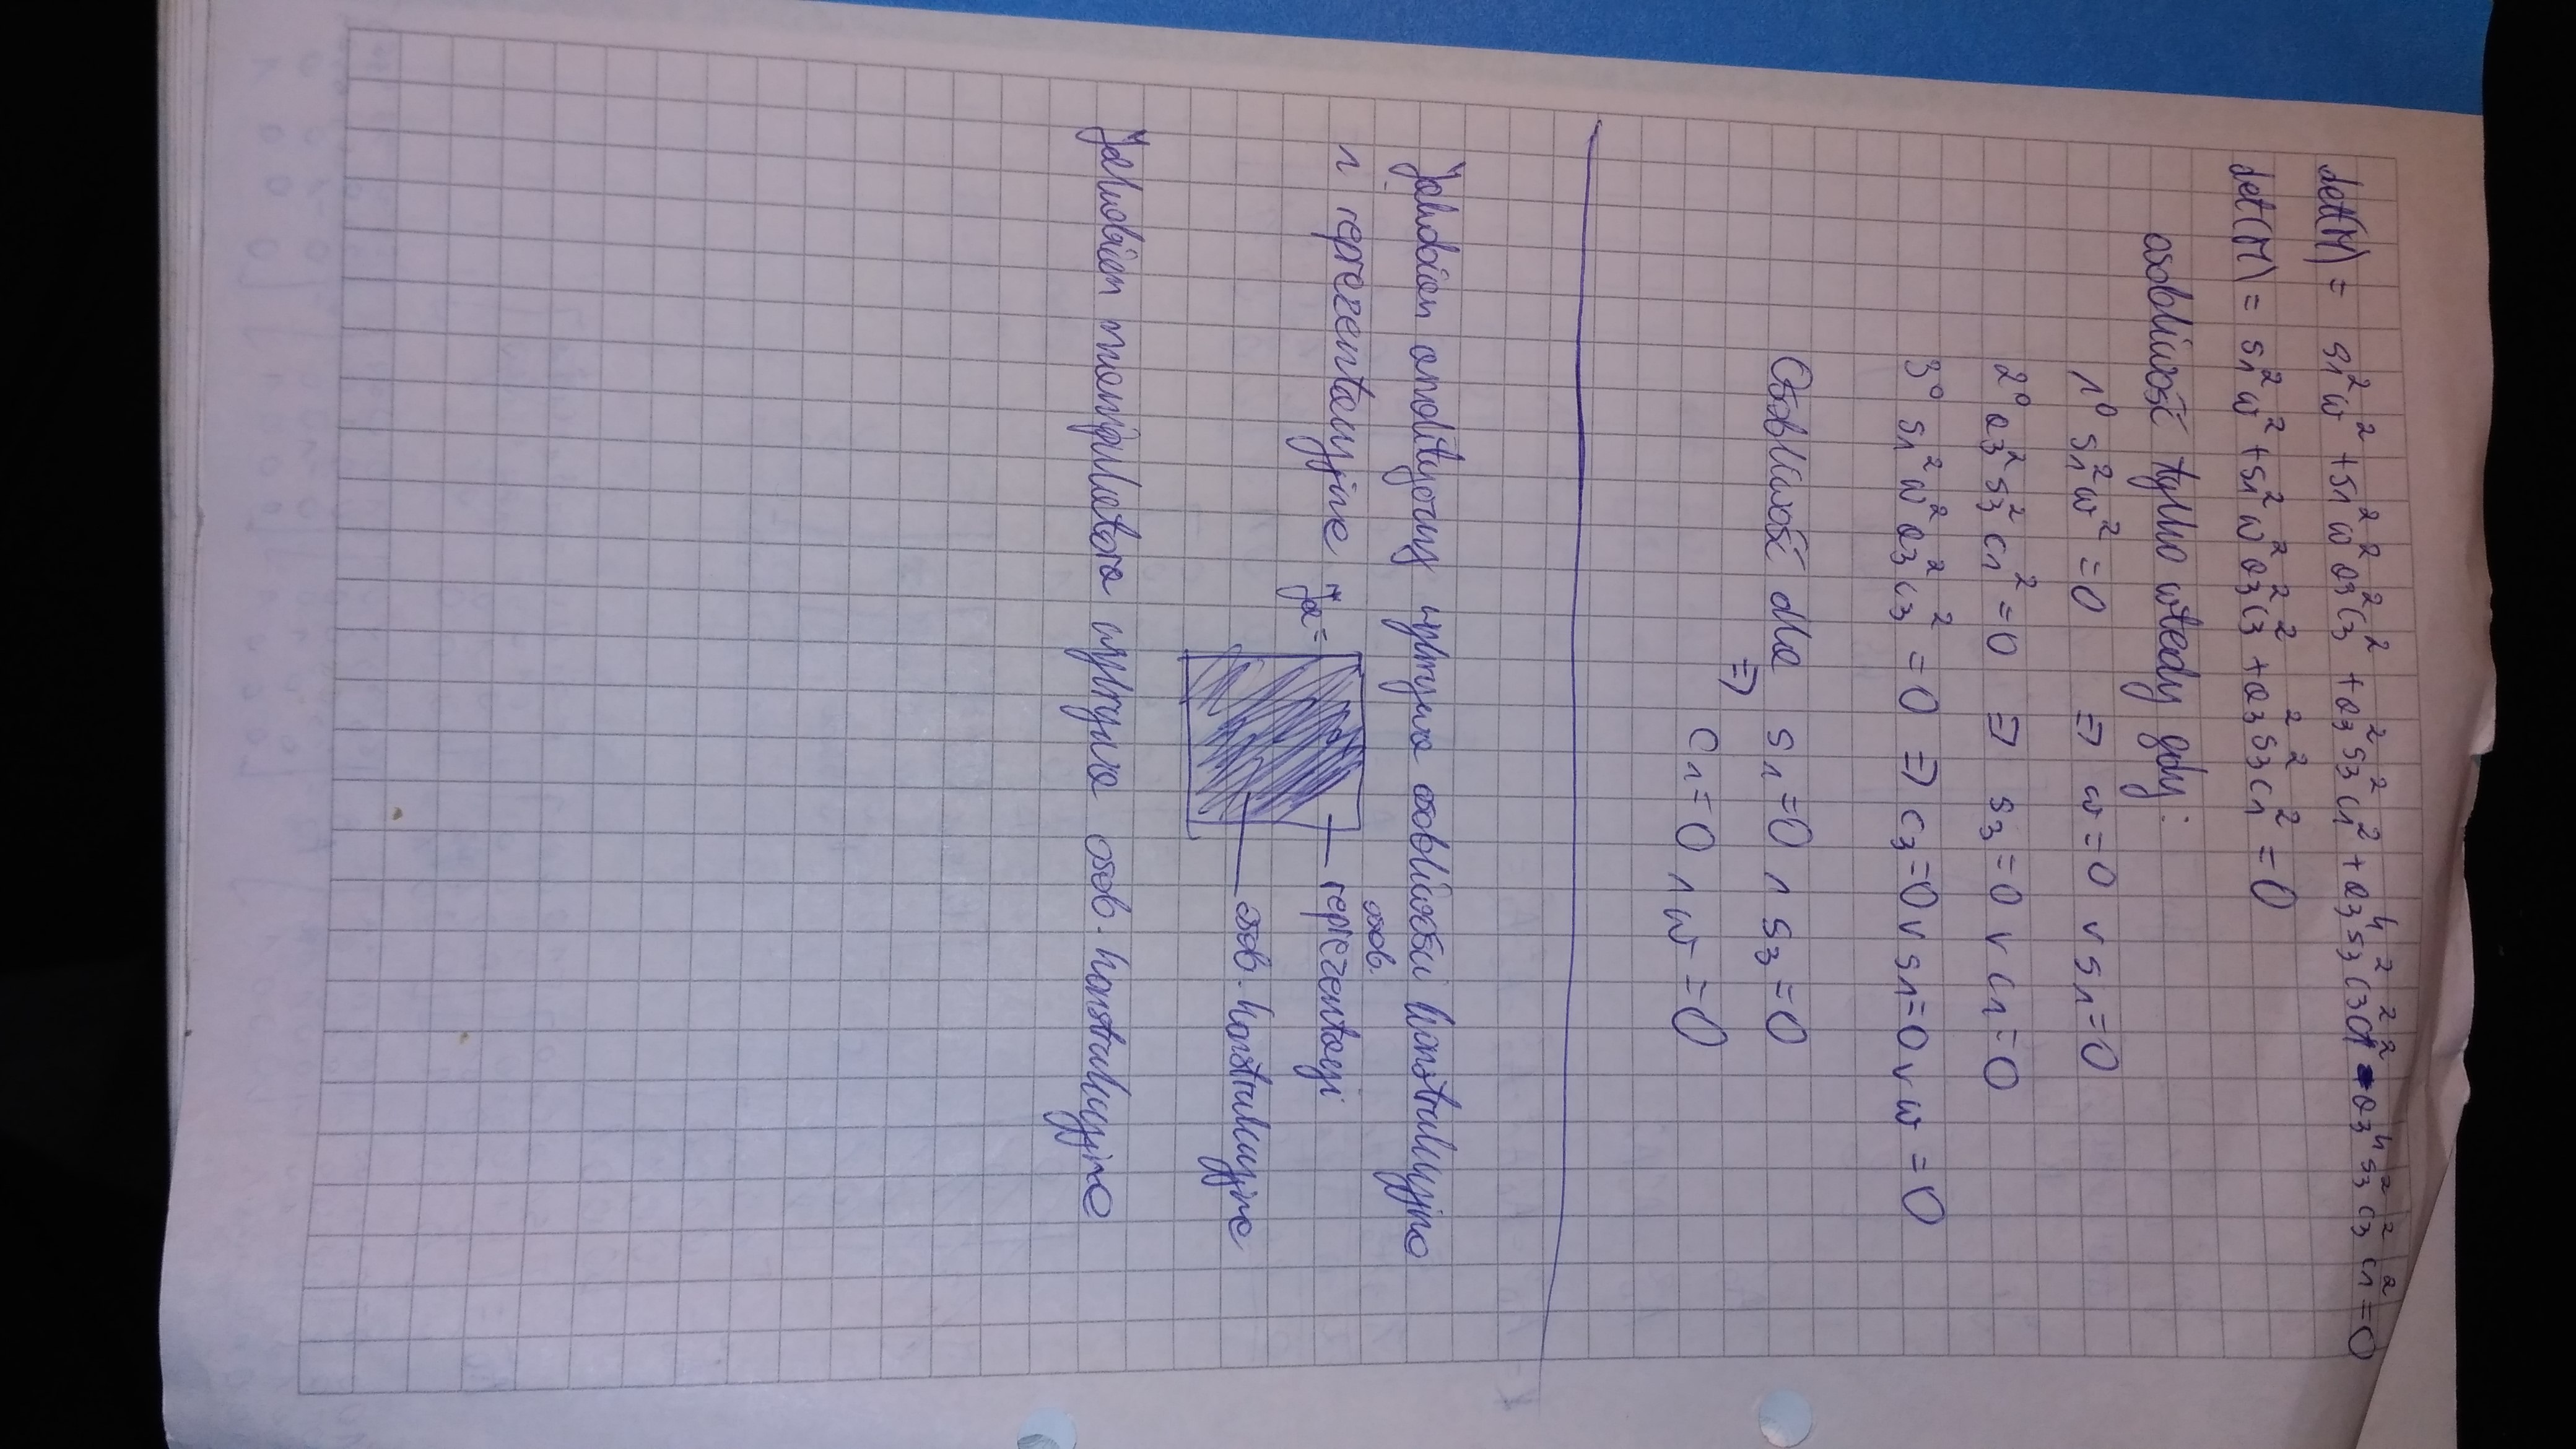 det(M) = s₁²w² + s₁²w²a₃²c₃² + a₃²s₃²c₁² + a₃⁴s₃²c₃²c₁² - a₃⁴s₃²c₃²c₁² = 0
det(M) = s₁²w² + s₁²w²a₃²c₃² + a₃²s₃²c₁² = 0
osobliwość tylko wtedy gdy:
1° s₁²w² = 0 ⇒ w = 0 ∨ s₁ = 0
2° a₃²s₃²c₁² = 0 ⇒ s₃ = 0 ∨ c₁ = 0
3° s₁²w²a₃²c₃² = 0 ⇒ c₃ = 0 ∨ s₁ = 0 ∨ w = 0
Osobliwość dla s₁ = 0 ∧ s₃ = 0
⇒ c₁ = 0 ∧ w = 0
Jakobian analityczny wykrywa osobliwości konstrukcyjne
i reprezentacyjne Ja =
osob.
reprezentacji
osob. konstrukcyjne
Jakobian manipulatora wykrywa osob. konstrukcyjne